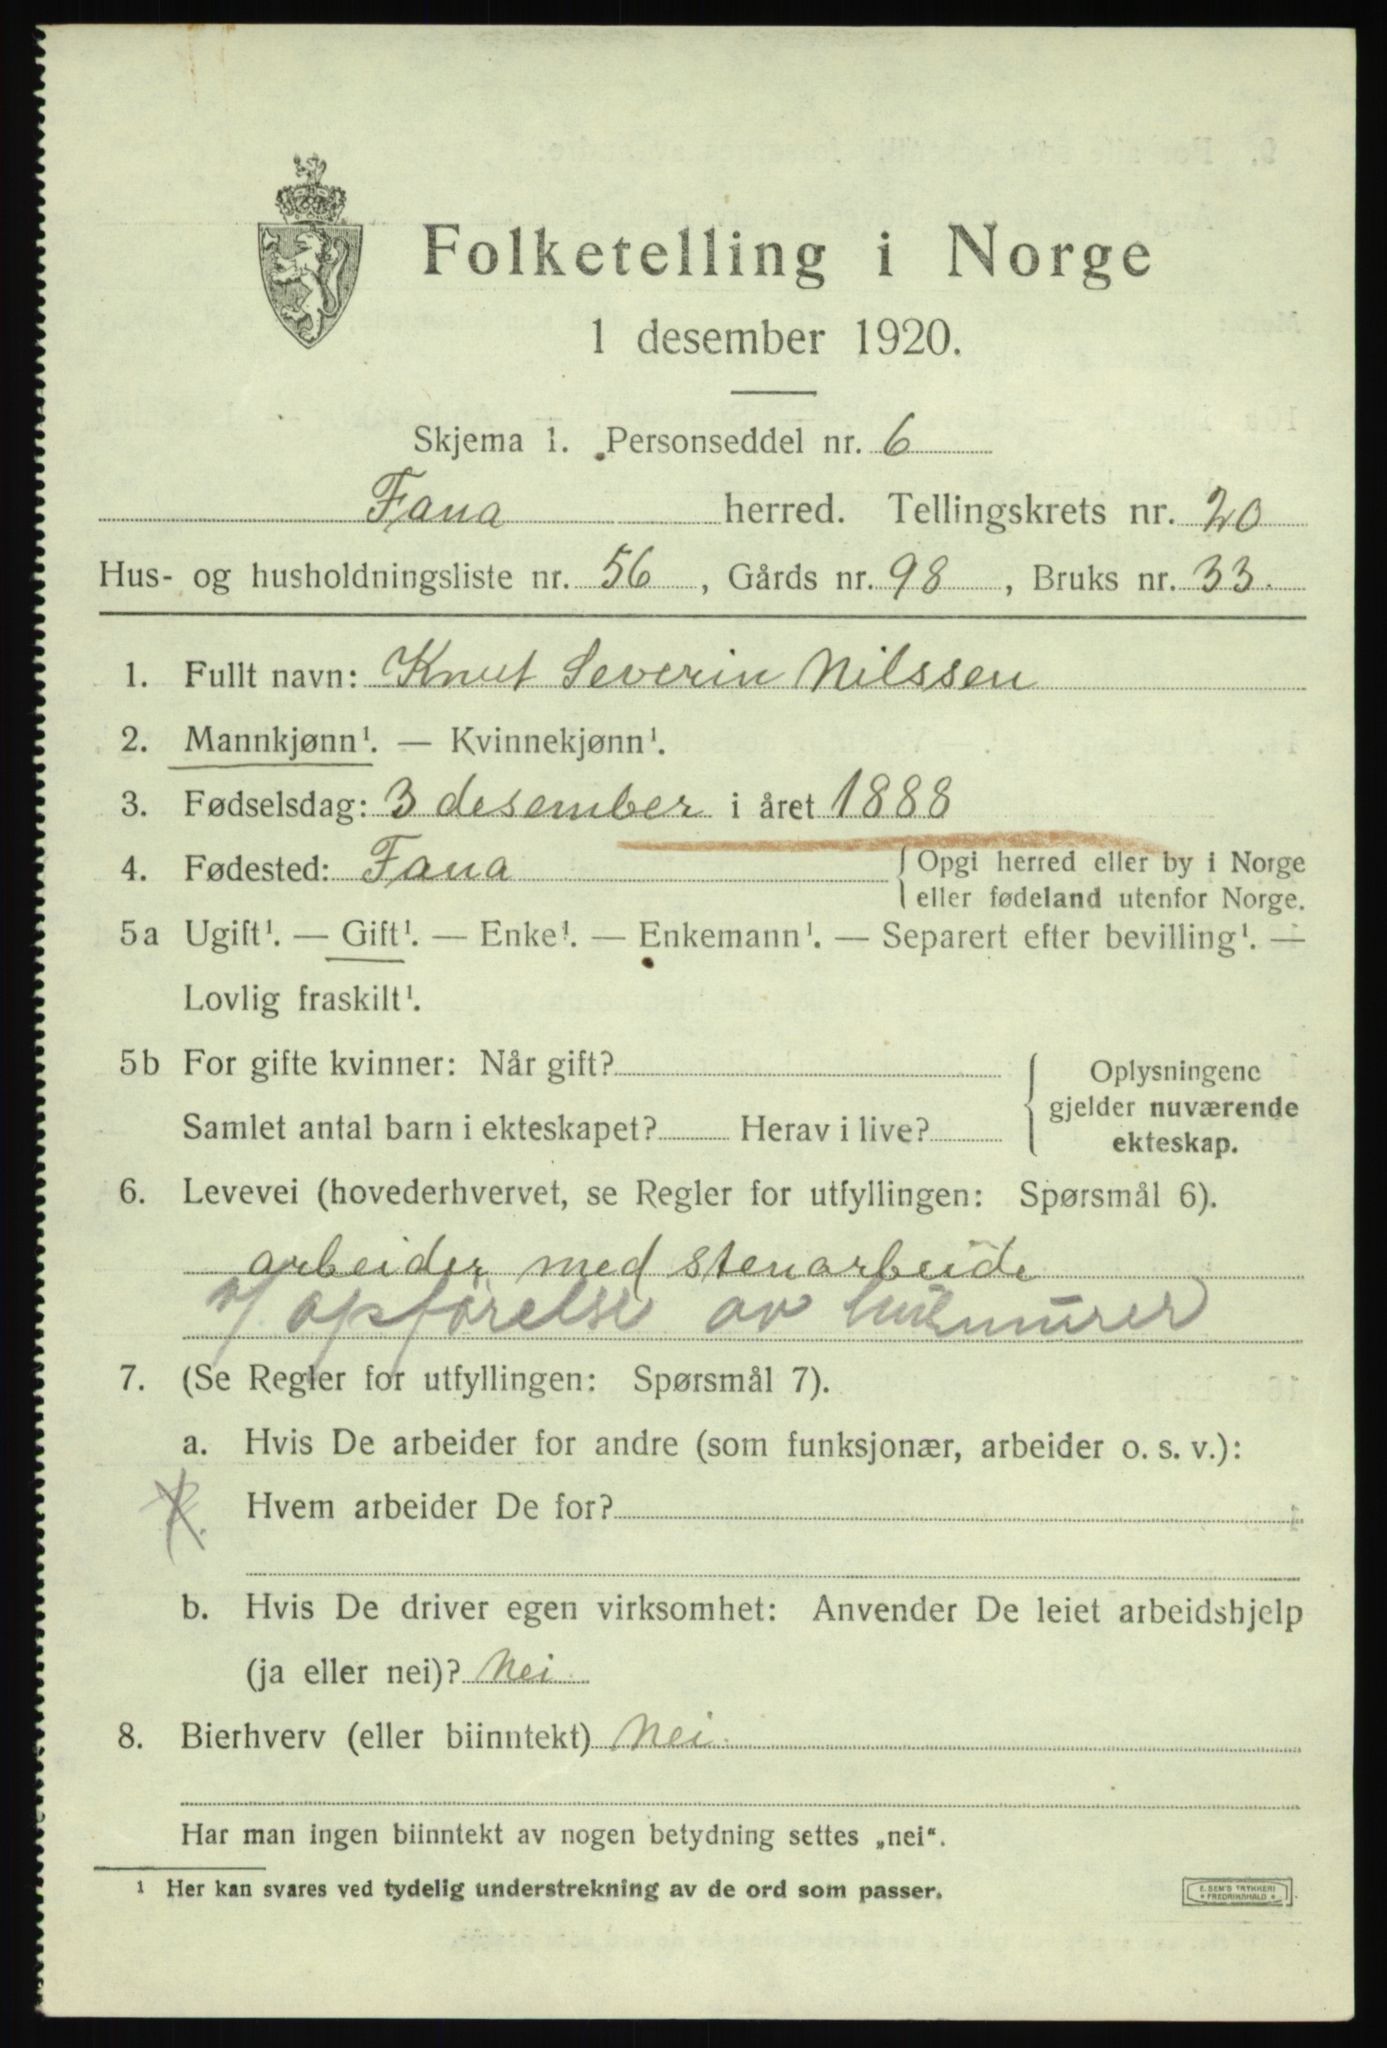 Folketelling i Norge
1 desember 1920.
Skjema 1. Personseddel nr. 6
Fana herred. Tellingskrets nr. 20
Hus- og husholdningsliste nr. 56, Gårds nr. 98, Bruks nr. 33.
1. Fullt navn: Knut Severin Nilssen
2. Mannkjønn¹. — Kvinnekjønn¹.
3. Fødselsdag: 3 desember i året 1888
4. Fødested: Fana { Opgi herred eller by i Norge
eller fødeland utenfor Norge.
5a Ugift¹. — Gift¹. — Enke¹. — Enkemann¹. — Separert efter bevilling¹. —
Lovlig fraskilt¹.
5b For gifte kvinner: Når gift?
Samlet antal barn i ekteskapet? Herav i live?
Oplysningene
gjelder nuværende
ekteskap.
6. Levevei (hovederhvervet, se Regler for utfyllingen: Spørsmål 6).
arbeider med stenarbeide
v/ opførelse av
7. (Se Regler for utfyllingen: Spørsmål 7).
a. Hvis De arbeider for andre (som funksjonær, arbeider o. s. v.):
Hvem arbeider De for?
b. Hvis De driver egen virksomhet: Anvender De leiet arbeidshjelp
(ja eller nei)? Nei
8. Bierhverv (eller biinntekt) Nei.
Har man ingen biinntekt av nogen betydning settes „nei“.
¹ Her kan svares ved tydelig understrekning av de ord som passer.
E. SEM'S TRYKKERI
FREDRIKSHALD